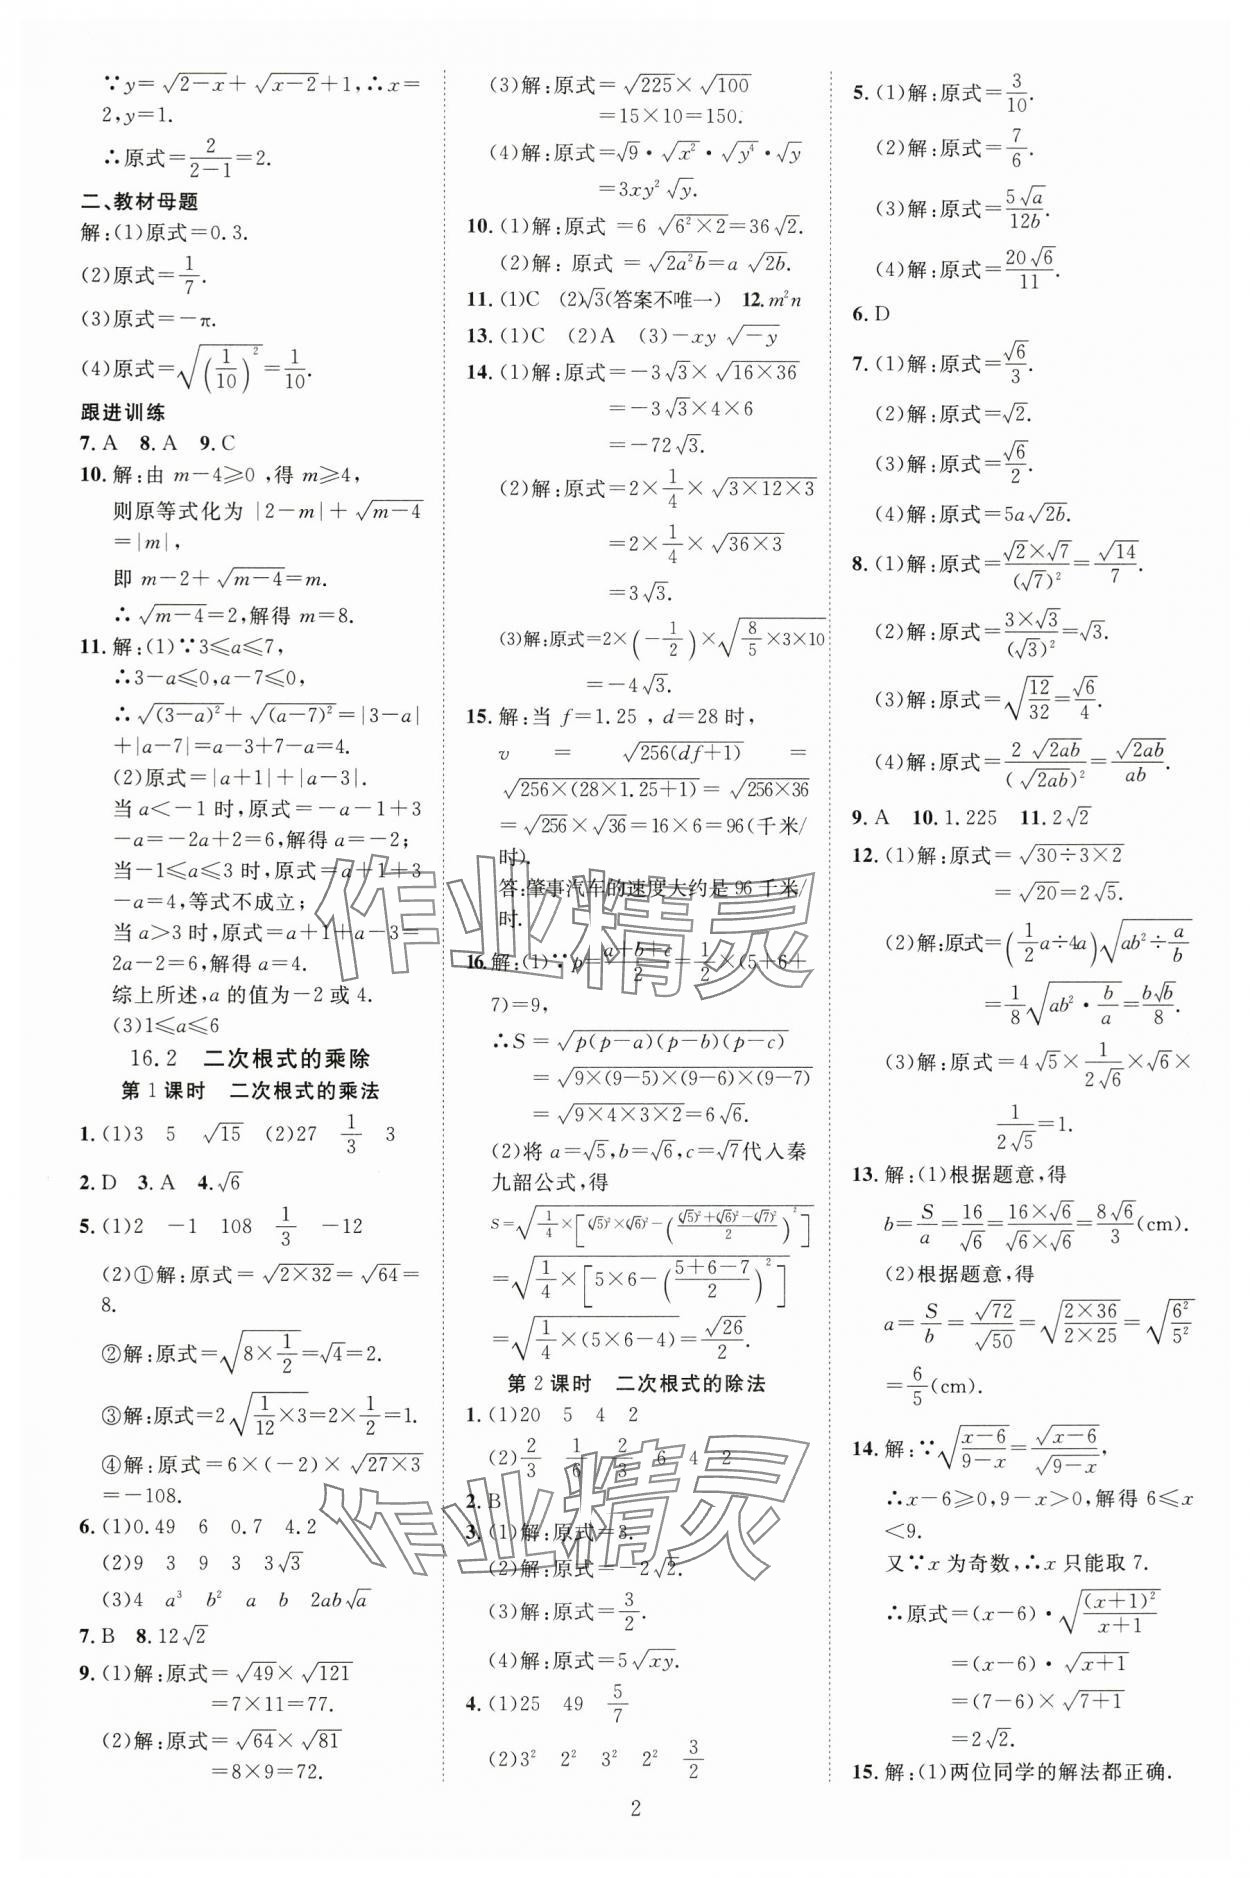 ∵y=√(2-x)+√(x-2)+1,∴x=
2,y=1.
∴原式=2/(2-1)=2.
二、教材母题
解:(1)原式=0.3.
(2)原式=1/7.
(3)原式=-π.
(4)原式=√((1/10)²)=1/10.
跟进训练
7.A 8.A 9.C
10.解:由 m-4≥0 ,得 m≥4,
则原等式化为 |2-m|+√(m-4)
=|m|,
即 m-2+√(m-4)=m.
∴√(m-4)=2,解得 m=8.
11.解:(1)∵3≤a≤7,
∴3-a≤0,a-7≤0,
∴√((3-a)²)+√((a-7)²)=|3-a|
+|a-7|=a-3+7-a=4.
(2)原式=|a+1|+|a-3|.
当 a<-1 时,原式=-a-1+3
-a=-2a+2=6,解得 a=-2;
当-1≤a≤3 时,原式=a+1+3
-a=4,等式不成立;
当 a>3 时,原式=a+1+a-3=
2a-2=6,解得 a=4.
综上所述,a 的值为-2 或 4.
(3)1≤a≤6
16.2 二次根式的乘除
第 1 课时 二次根式的乘法
1.(1)3 5 √15 (2)27 1/3 3
2.D 3.A 4.√6
5.(1)2 -1 108 1/3 -12
(2)①解:原式=√(2×32)=√64=
8.
②解:原式=√(8×1/2)=√4=2.
③解:原式=2√(1/12×3)=2×1/2=1.
④解:原式=6×(-2)×√(27×3)
=-108.
6.(1)0.49 6 0.7 4.2
(2)9 3 9 3 3√3
(3)4 a³ b² a b 2ab√a
7.B 8.12√2
9.(1)解:原式=√49×√121
=7×11=77.
(2)解:原式=√64×√81
=8×9=72.
(3)解:原式=√225×√100
=15×10=150.
(4)解:原式=√9·√x²·√y⁴·√y
=3xy²√y.
10.(1)解:原式 =6√(6²×2)=36√2.
(2)解: 原式 =√(2a²b)=a√2b.
11.(1)C (2)√3(答案不唯一) 12.m²n
13.(1)C (2)A (3)-xy√(-y)
14.(1)解:原式=-3√3×√(16×36)
=-3√3×4×6
=-72√3.
(2)解:原式=2×1/4×√(3×12×3)
=2×1/4×√(36×3)
=3√3.
(3)解:原式=2×(-1/2)×√(8/5×3×10)
=-4√3.
15.解:当 f=1.25 ,d=28 时,
v = √(256(df+1)) =
√(256×(28×1.25+1))=√(256×36)
=√256×√36=16×6=96(千米/
时).
答:肇事汽车的速度大约是 96 千米/
时.
16.解:(1)∵p=(a+b+c)/2=1/2×(5+6+
7)=9,
∴S=√(p(p-a)(p-b)(p-c))
=√(9×(9-5)×(9-6)×(9-7))
=√(9×4×3×2)=6√6.
(2)将 a=√5,b=√6,c=√7代入秦
九韶公式,得
S=√(1/4×[(√5)²×(√6)²-(((√5)²+(√6)²-(√7)²)/2)²])
=√(1/4×[5×6-((5+6-7)/2)²])
=√(1/4×(5×6-4))=√26/2.
第 2 课时 二次根式的除法
1.(1)20 5 4 2
(2)2/3 1/6 2/3 6 4 2
2.B
3.(1)解:原式=3.
(2)解:原式=-2√2.
(3)解:原式=3/2.
(4)解:原式=5√xy.
4.(1)25 49 5/7
(2)3² 2² 3² 2² 3/2
5.(1)解:原式=3/10.
(2)解:原式=7/6.
(3)解:原式=5√a/12b.
(4)解:原式=20√6/11.
6.D
7.(1)解:原式=√6/3.
(2)解:原式=√2.
(3)解:原式=√6/2.
(4)解:原式=5a√2b.
8.(1)解:原式=(√2×√7)/(√7)²=√14/7.
(2)解:原式=(3×√3)/(√3)²=√3.
(3)解:原式=√(12/32)=√6/4.
(4)解:原式=2√2ab/(√2ab)²=√2ab/ab.
9.A 10.1.225 11.2√2
12.(1)解:原式=√(30÷3×2)
=√20=2√5.
(2)解:原式=(1/2a÷4a)√(ab²÷a/b)
=1/8√(ab²·b/a)=b√b/8.
(3)解:原式=4√5×1/(2√6)×√6×
1/(2√5)=1.
13.解:(1)根据题意,得
b=S/a=16/√6=(16×√6)/(√6×√6)=8√6/3(cm).
(2)根据题意,得
a=S/b=√72/√50=√((2×36)/(2×25))=√(6²/5²)
=6/5(cm).
14.解:∵√((x-6)/(9-x))=√(x-6)/√(9-x),
∴x-6≥0,9-x>0,解得 6≤x
<9.
又∵x 为奇数,∴x 只能取 7.
∴原式=(x-6)·√((x+1)²/(x+1))
=(x-6)·√(x+1)
=(7-6)×√(7+1)
=2√2.
15.解:(1)两位同学的解法都正确.
2
作业精灵
作业精灵